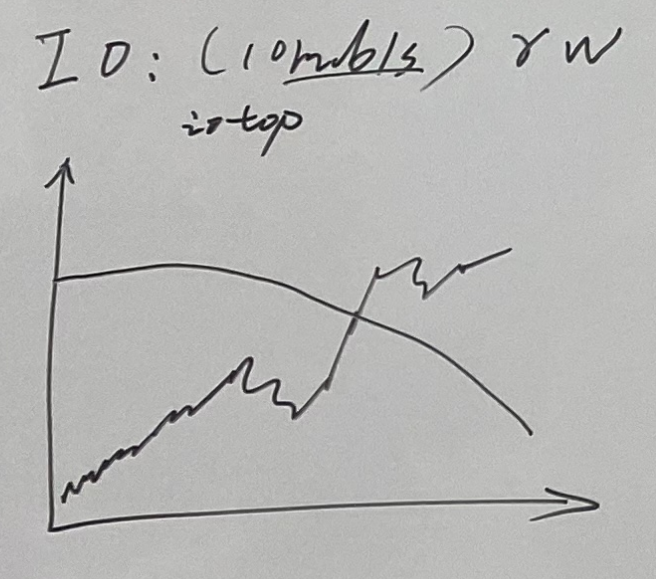 IO: (10mb/s) r w
io-top